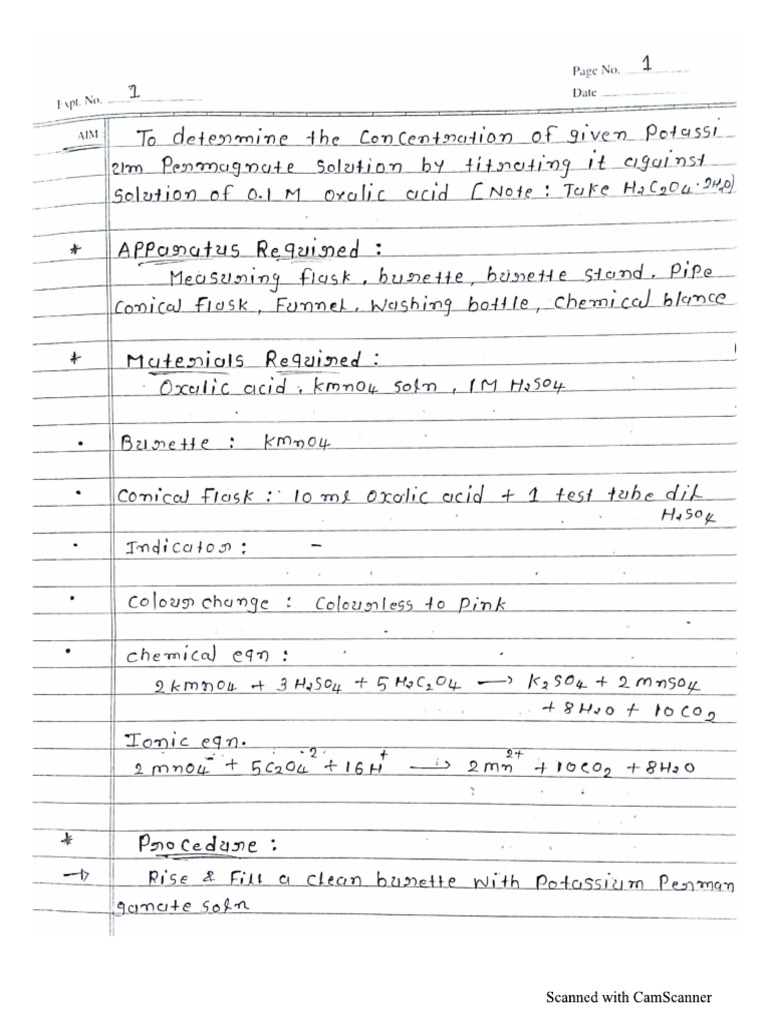 Page No. 1
Expt. No. 1
Date
AIM To determine the concentration of given Potassi
um Permagnate solution by titrating it against
solution of 0.1 M oxalic acid [Note : Take H2C2O4·2H2O)
* Apparatus Required :
Measuring flask, burette, burette stand. Pipe
Conical flask, Funnel, Washing bottle, Chemical blance
* Materials Required :
Oxalic acid, kmno4 soln, 1M H2SO4
• Burette : kmno4
• Conical Flask : 10 ml oxalic acid + 1 test tube dil
H2SO4
• Indicator : –
• Colour change : Colourless to Pink
• chemical eqn :
2 kmno4 + 3 H2SO4 + 5 H2C2O4 → K2SO4 + 2 mnSO4
+ 8H2O + 10CO2
Ionic eqn.
2 mno4⁻ + 5C2O4⁻² + 16H⁺ → 2mn²⁺ + 10CO2 + 8H2O
* Procedure :
→ Rise & Fill a clean burette with Potassium Perman
ganate soln
Scanned with CamScanner